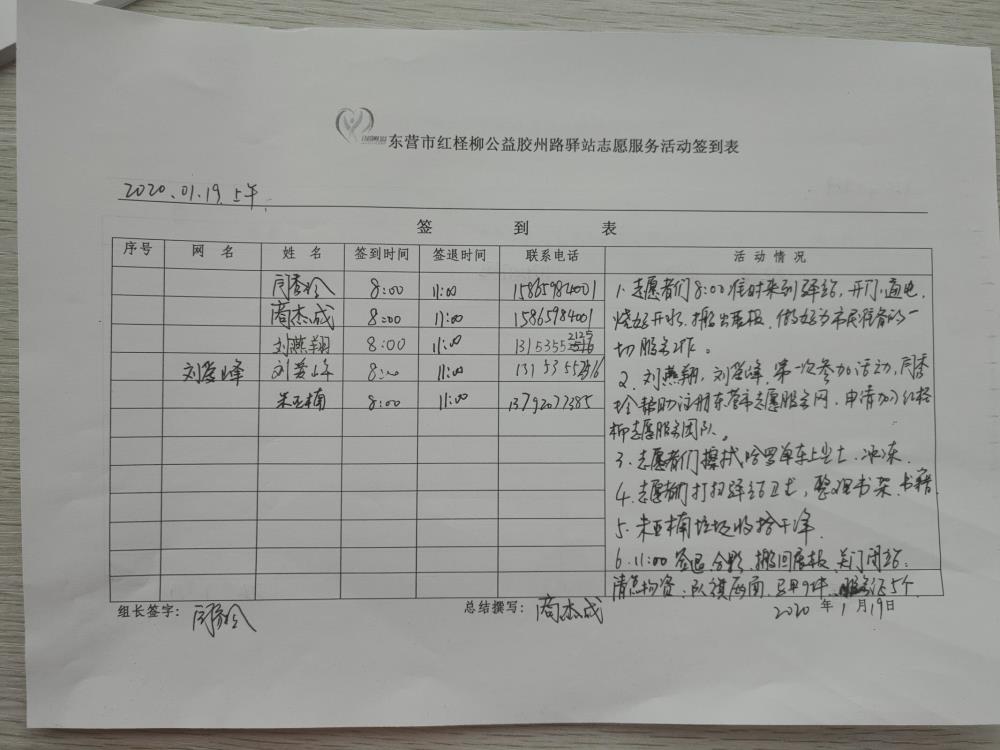 东营市红柽柳公益胶州路驿站志愿服务活动签到表
2020.01.19.上午
签 到 表
序号 网 名 姓 名 签到时间 签退时间 联系电话 活 动 情 况
闫秀玲 8:00 11:00 15865984001
商杰成 8:00 11:00 15865984001
刘燕翔 8:00 11:00 1315355 2125
刘爱峰 刘爱峰 8:00 11:00
朱亚楠 8:00 11:00 13792077385
1.志愿者们8:00准时来到驿站,开门,通电,
烧好开水,搬出展板,做好为市民准备的一
切服务工作。
2.刘燕翔,刘爱峰,第一次参加活动,闫秀
玲帮助注册东营市志愿服务网,申请加入红柽
柳志愿服务团队。
3.志愿者们擦拭哈罗单车上尘土,冰冻.
4.志愿者们打扫驿站卫生,整理书架,书籍
5.朱亚楠垃圾收拾干净
6.11:00签退,合影,搬回展板,关门闭站.
清点物资:队旗两面,马甲9件,服务证5个.
组长签字: 闫秀玲 总结撰写: 商杰成 2020 年 1 月 19 日